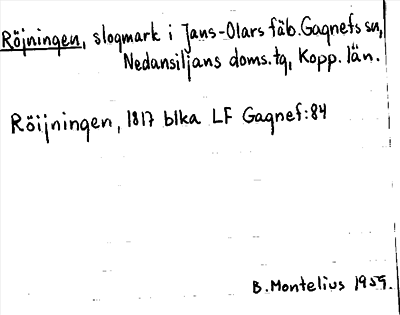 Röjningen, slogmark i Jans-Olars fäb. Gagnefs sn,
Nedansiljans doms.tg, Kopp. län.
Röijningen, 1817 blka LF Gagnef:84
B. Montelius 1959.